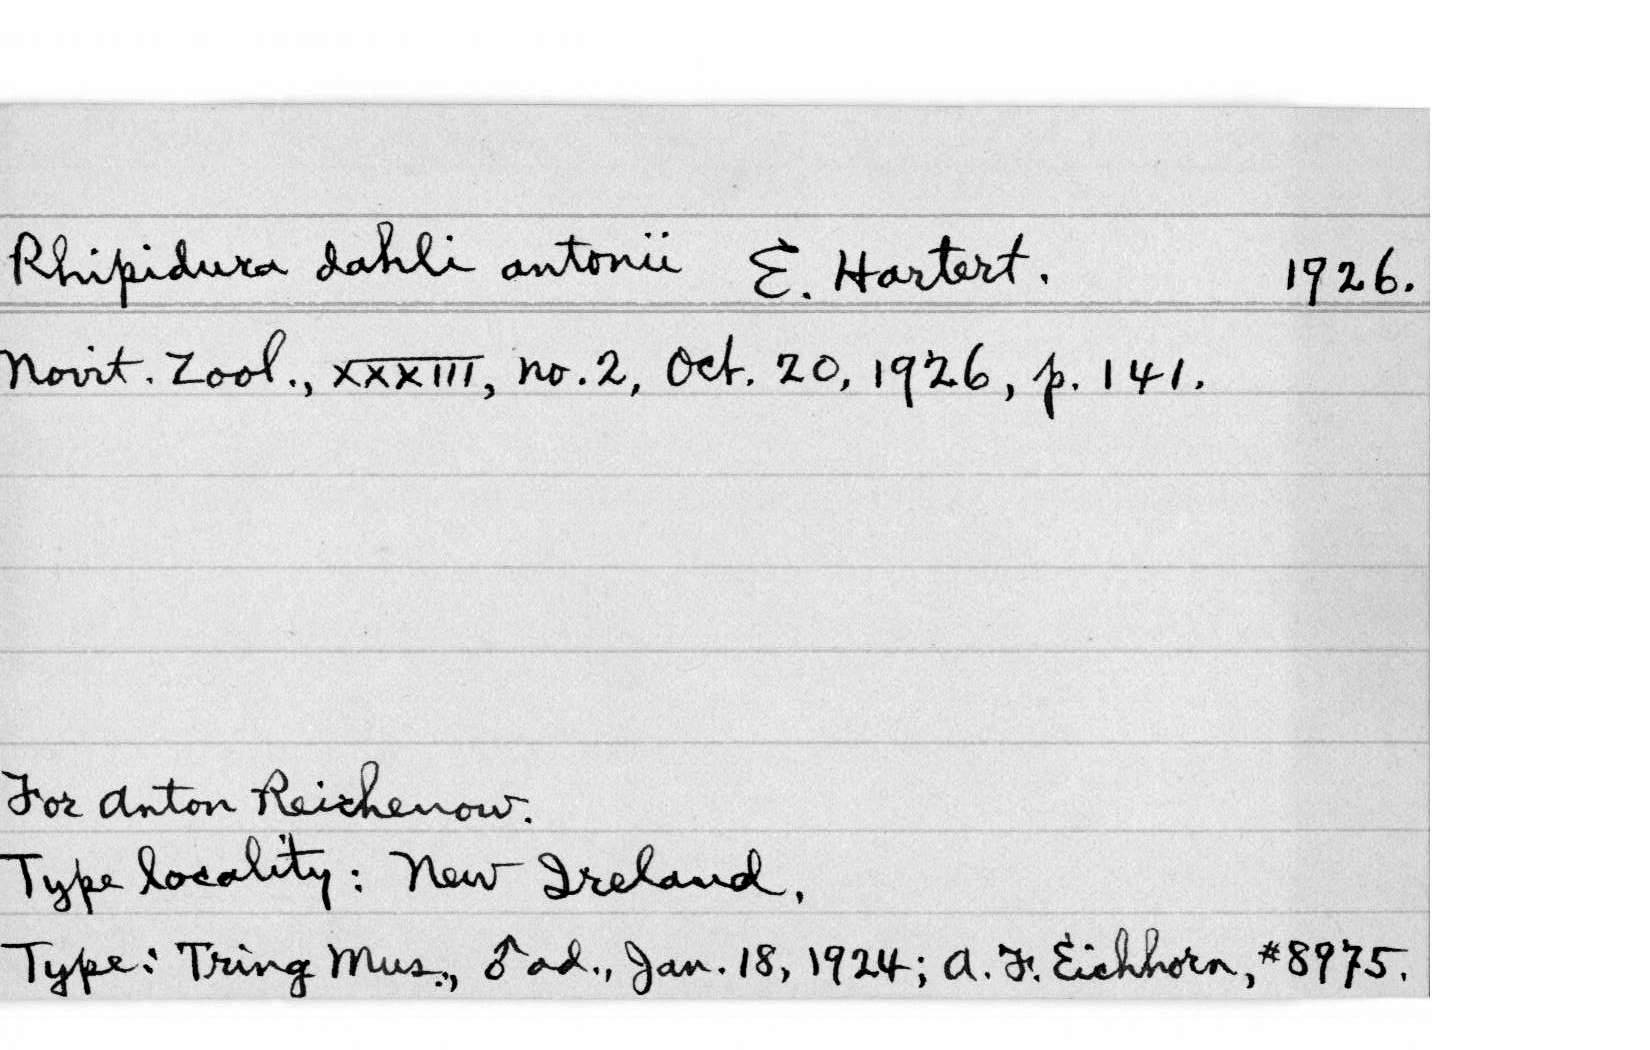 Rhipidura dahli antonii E. Hartert. 1926.
Novit. Zool., XXXIII, no. 2, Oct. 20, 1926, p. 141.
For Anton Reichenow.
Type locality: New Ireland.
Type: Tring Mus., ♂ ad., Jan. 18, 1924; A. F. Eichhorn, #8975.